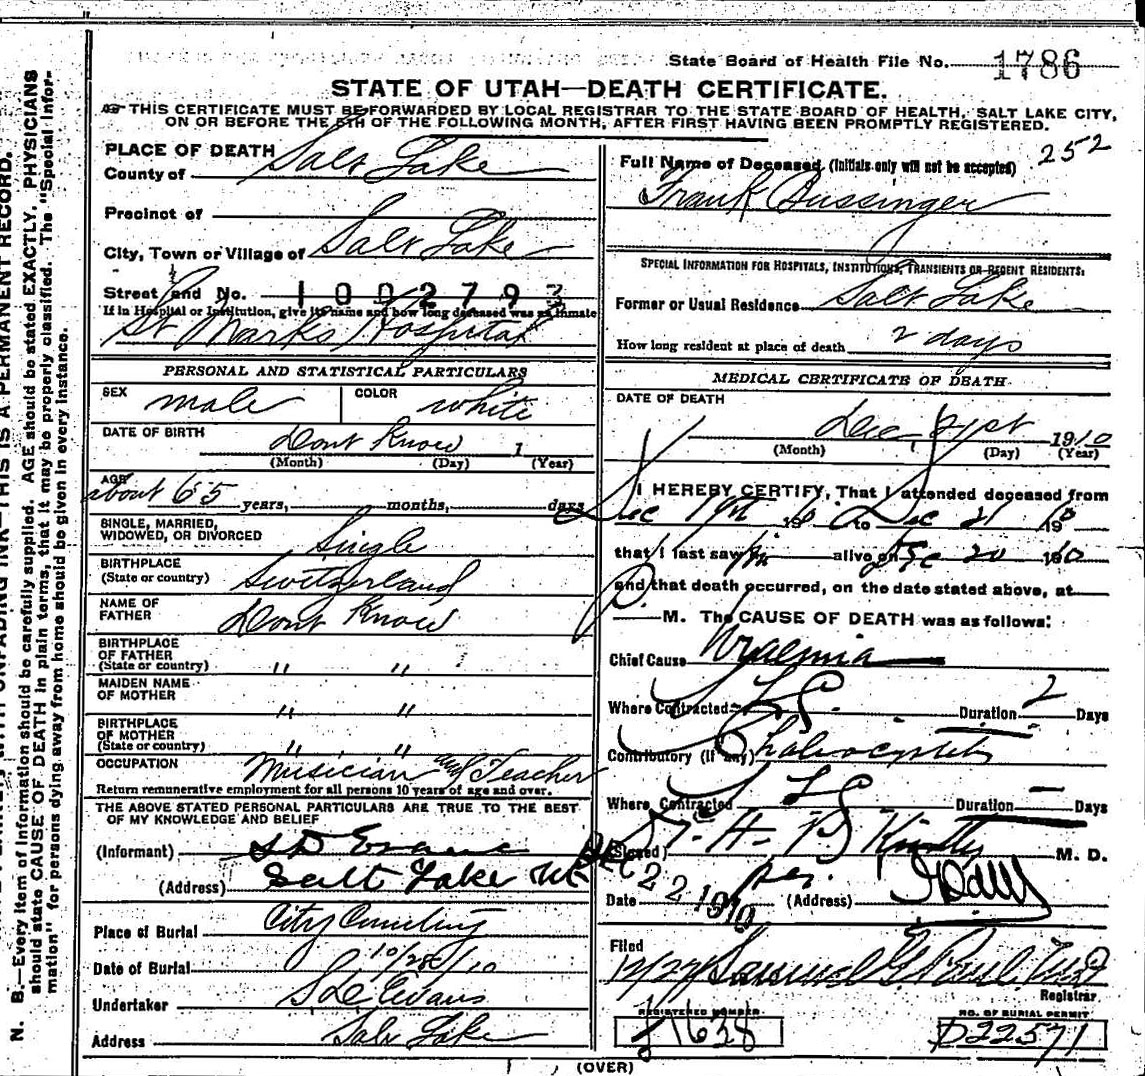 State Board of Health File No. 1786
STATE OF UTAH—DEATH CERTIFICATE.
THIS CERTIFICATE MUST BE FORWARDED BY LOCAL REGISTRAR TO THE STATE BOARD OF HEALTH, SALT LAKE CITY,
ON OR BEFORE THE 5TH OF THE FOLLOWING MONTH, AFTER FIRST HAVING BEEN PROMPTLY REGISTERED.
PLACE OF DEATH
County of Salt Lake
Precinct of
City, Town or Village of Salt Lake
Street and No. 1002793
If in Hospital or Institution, give its name and how long deceased was an inmate
St Marks Hospital
PERSONAL AND STATISTICAL PARTICULARS
SEX male COLOR white
DATE OF BIRTH Dont Know 1
(Month) (Day) (Year)
AGE about 65 years, months, days
SINGLE, MARRIED,
WIDOWED, OR DIVORCED Single
BIRTHPLACE
(State or country) Switzerland
NAME OF
FATHER Dont Know
BIRTHPLACE
OF FATHER
(State or country) " "
MAIDEN NAME
OF MOTHER " "
BIRTHPLACE
OF MOTHER
(State or country) " "
OCCUPATION Musician and Teacher
Return remunerative employment for all persons 10 years of age and over.
THE ABOVE STATED PERSONAL PARTICULARS ARE TRUE TO THE BEST
OF MY KNOWLEDGE AND BELIEF
(Informant) S D Evans
(Address) Salt Lake Ut
Place of Burial City Cemetery
Date of Burial 10/28/10
Undertaker S D Evans
Address Salt Lake
252
Full Name of Deceased (Initials only will not be accepted)
Frank Bussinger
SPECIAL INFORMATION FOR HOSPITALS, INSTITUTIONS, TRANSIENTS OR RECENT RESIDENTS:
Former or Usual Residence Salt Lake
How long resident at place of death 2 days
MEDICAL CERTIFICATE OF DEATH
DATE OF DEATH
Dec, 21st 1910
(Month) (Day) (Year)
I HEREBY CERTIFY, That I attended deceased from
Dec 19th 1910 to Dec 21 1910
that I last saw him alive on Dec 20 1910
and that death occurred, on the date stated above, at
P. M. The CAUSE OF DEATH was as follows:
Chief Cause Uraemia
Where Contracted S L C Duration 2 Days
Contributory (if any) Cholecystitis
Where Contracted S L C Duration — Days
(Signed) H. P. M. D.
DEC 22 1910 per.
Date (Address)
Filed
12/27 Samuel G. Paul M D
Registrar
REGISTERED NUMBER
1638
NO. OF BURIAL PERMIT
D22571
(OVER)
N. B.—Every item of information should be carefully supplied. AGE should be stated EXACTLY. PHYSICIANS
should state CAUSE OF DEATH in plain terms, that it may be properly classified. The "Special Infor-
mation" for persons dying away from home should be given in every instance.
WITH UNFADING INK—THIS IS A PERMANENT RECORD.